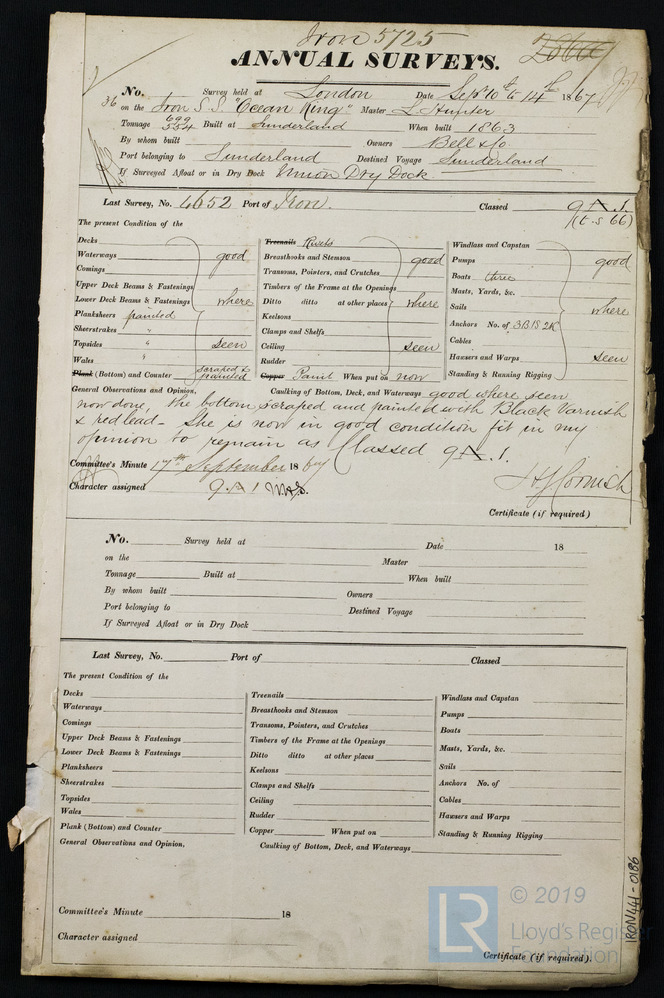 Iron 5725
ANNUAL SURVEYS.
No. Survey held at London Date Sept 10th to 14th 1867
36 on the Iron S.S. "Ocean King" Master L. Hunter
Tonnage 699 554 Built at Sunderland When built 1863
By whom built Owners Bell & Co
Port belonging to Sunderland Destined Voyage Sunderland
If Surveyed Afloat or in Dry Dock Union Dry Dock
Last Survey, No. 4652 Port of Iron. Classed 9 A.1.
(t-s 66)
The present Condition of the
Decks
Waterways good
Comings
Upper Deck Beams & Fastenings
Lower Deck Beams & Fastenings where
Planksheers painted
Sheerstrakes "
Topsides " seen
Wales "
Plank (Bottom) and Counter scraped & painted
Treenails Rivets
Breasthooks and Stemson good
Transoms, Pointers, and Crutches
Timbers of the Frame at the Openings
Ditto ditto at other places where
Keelsons
Clamps and Shelfs
Ceiling seen
Rudder
Copper Paint When put on now
Windlass and Capstan
Pumps good
Boats three
Masts, Yards, &c.
Sails where
Anchors No. of 3B 1S 2K
Cables
Hawsers and Warps seen
Standing & Running Rigging
General Observations and Opinion, Caulking of Bottom, Deck, and Waterways good where seen
now done, the bottom scraped and painted with Black Varnish
& red lead - She is now in good condition fit in my
opinion to remain as Classed 9 A.1.
Committee's Minute 17th September 1867
Character assigned 9 A 1
Certificate (if required)
No. Survey held at Date 18
on the Master
Tonnage Built at When built
By whom built Owners
Port belonging to Destined Voyage
If Surveyed Afloat or in Dry Dock
Last Survey, No. Port of Classed
The present Condition of the
Decks
Waterways
Comings
Upper Deck Beams & Fastenings
Lower Deck Beams & Fastenings
Planksheers
Sheerstrakes
Topsides
Wales
Plank (Bottom) and Counter
Treenails
Breasthooks and Stemson
Transoms, Pointers, and Crutches
Timbers of the Frame at the Openings
Ditto ditto at other places
Keelsons
Clamps and Shelfs
Ceiling
Rudder
Copper When put on
Windlass and Capstan
Pumps
Boats
Masts, Yards, &c.
Sails
Anchors No. of
Cables
Hawsers and Warps
Standing & Running Rigging
General Observations and Opinion, Caulking of Bottom, Deck, and Waterways
Committee's Minute 18
Character assigned
Certificate (if required).
IRON 441-0186
LR
© 2019
Lloyd's Register
Foundation